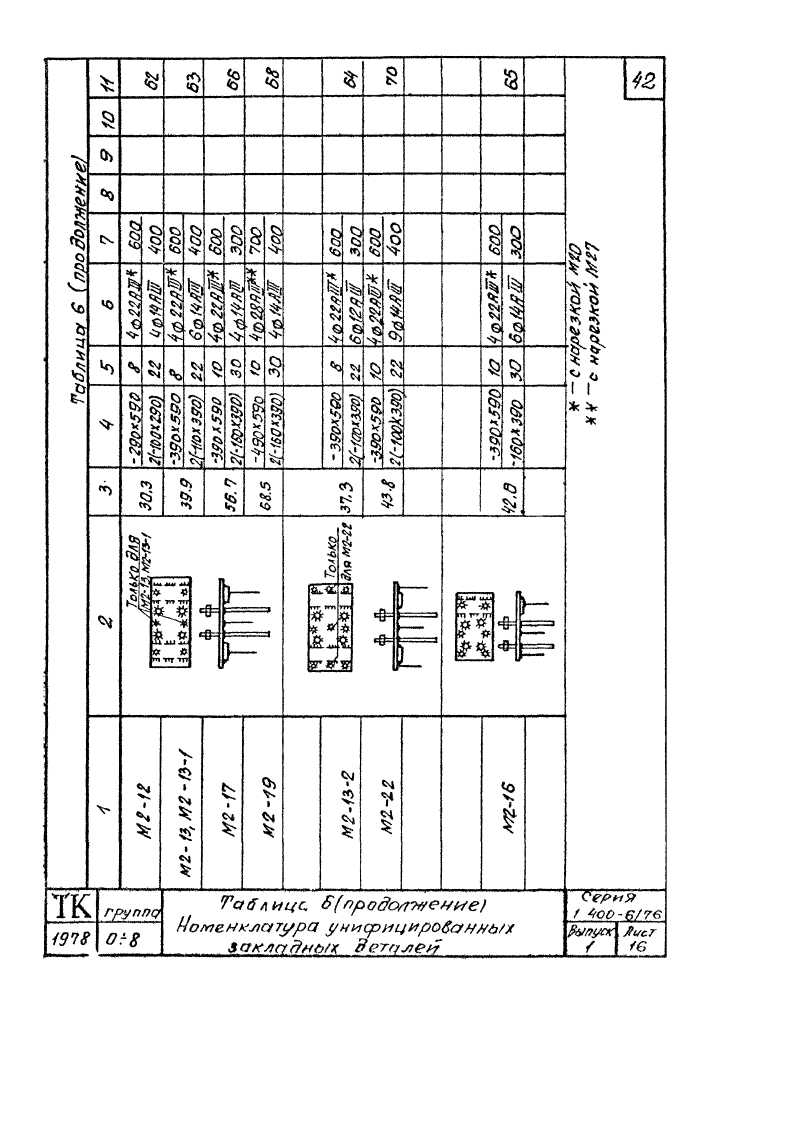 42
Таблица 6 (продолжение)
1 2 3 4 5 6 7 8 9 10 11
М2-12 30.3 -290×590 8 4ф22АIII* 600 62
2(-100×290) 22 4ф14АIII 400
М2-13, М2-13-1 39.9 -390×590 8 4ф22АIII* 600 63
2(-110×390) 22 6ф14АIII 400
М2-17 56.7 -390×590 10 4ф22АIII* 600 66
2(-160×390) 30 4ф14АIII 300
М2-19 68.5 -490×590 10 4ф28АIII** 700 68
2(-160×390) 30 4ф14АIII 400
Только для
М2-13, М2-13-1
М2-13-2 37.3 -390×590 8 4ф22АIII* 600 64
2(-100×390) 22 6ф12АIII 300
М2-22 43.8 -390×590 10 4ф22АIII* 600 70
2(-100×390) 22 9ф14АIII 400
Только
для М2-22
М2-16 42.0 -390×590 10 4ф22АIII* 600 65
-160×390 30 6ф14АIII 300
* — с нарезкой М20
** — с нарезкой М27
ТК
1978
группа
0÷8
Таблица 6 (продолжение)
Номенклатура унифицированных
закладных деталей
Серия
1 400-6/76
Выпуск
1
Лист
16